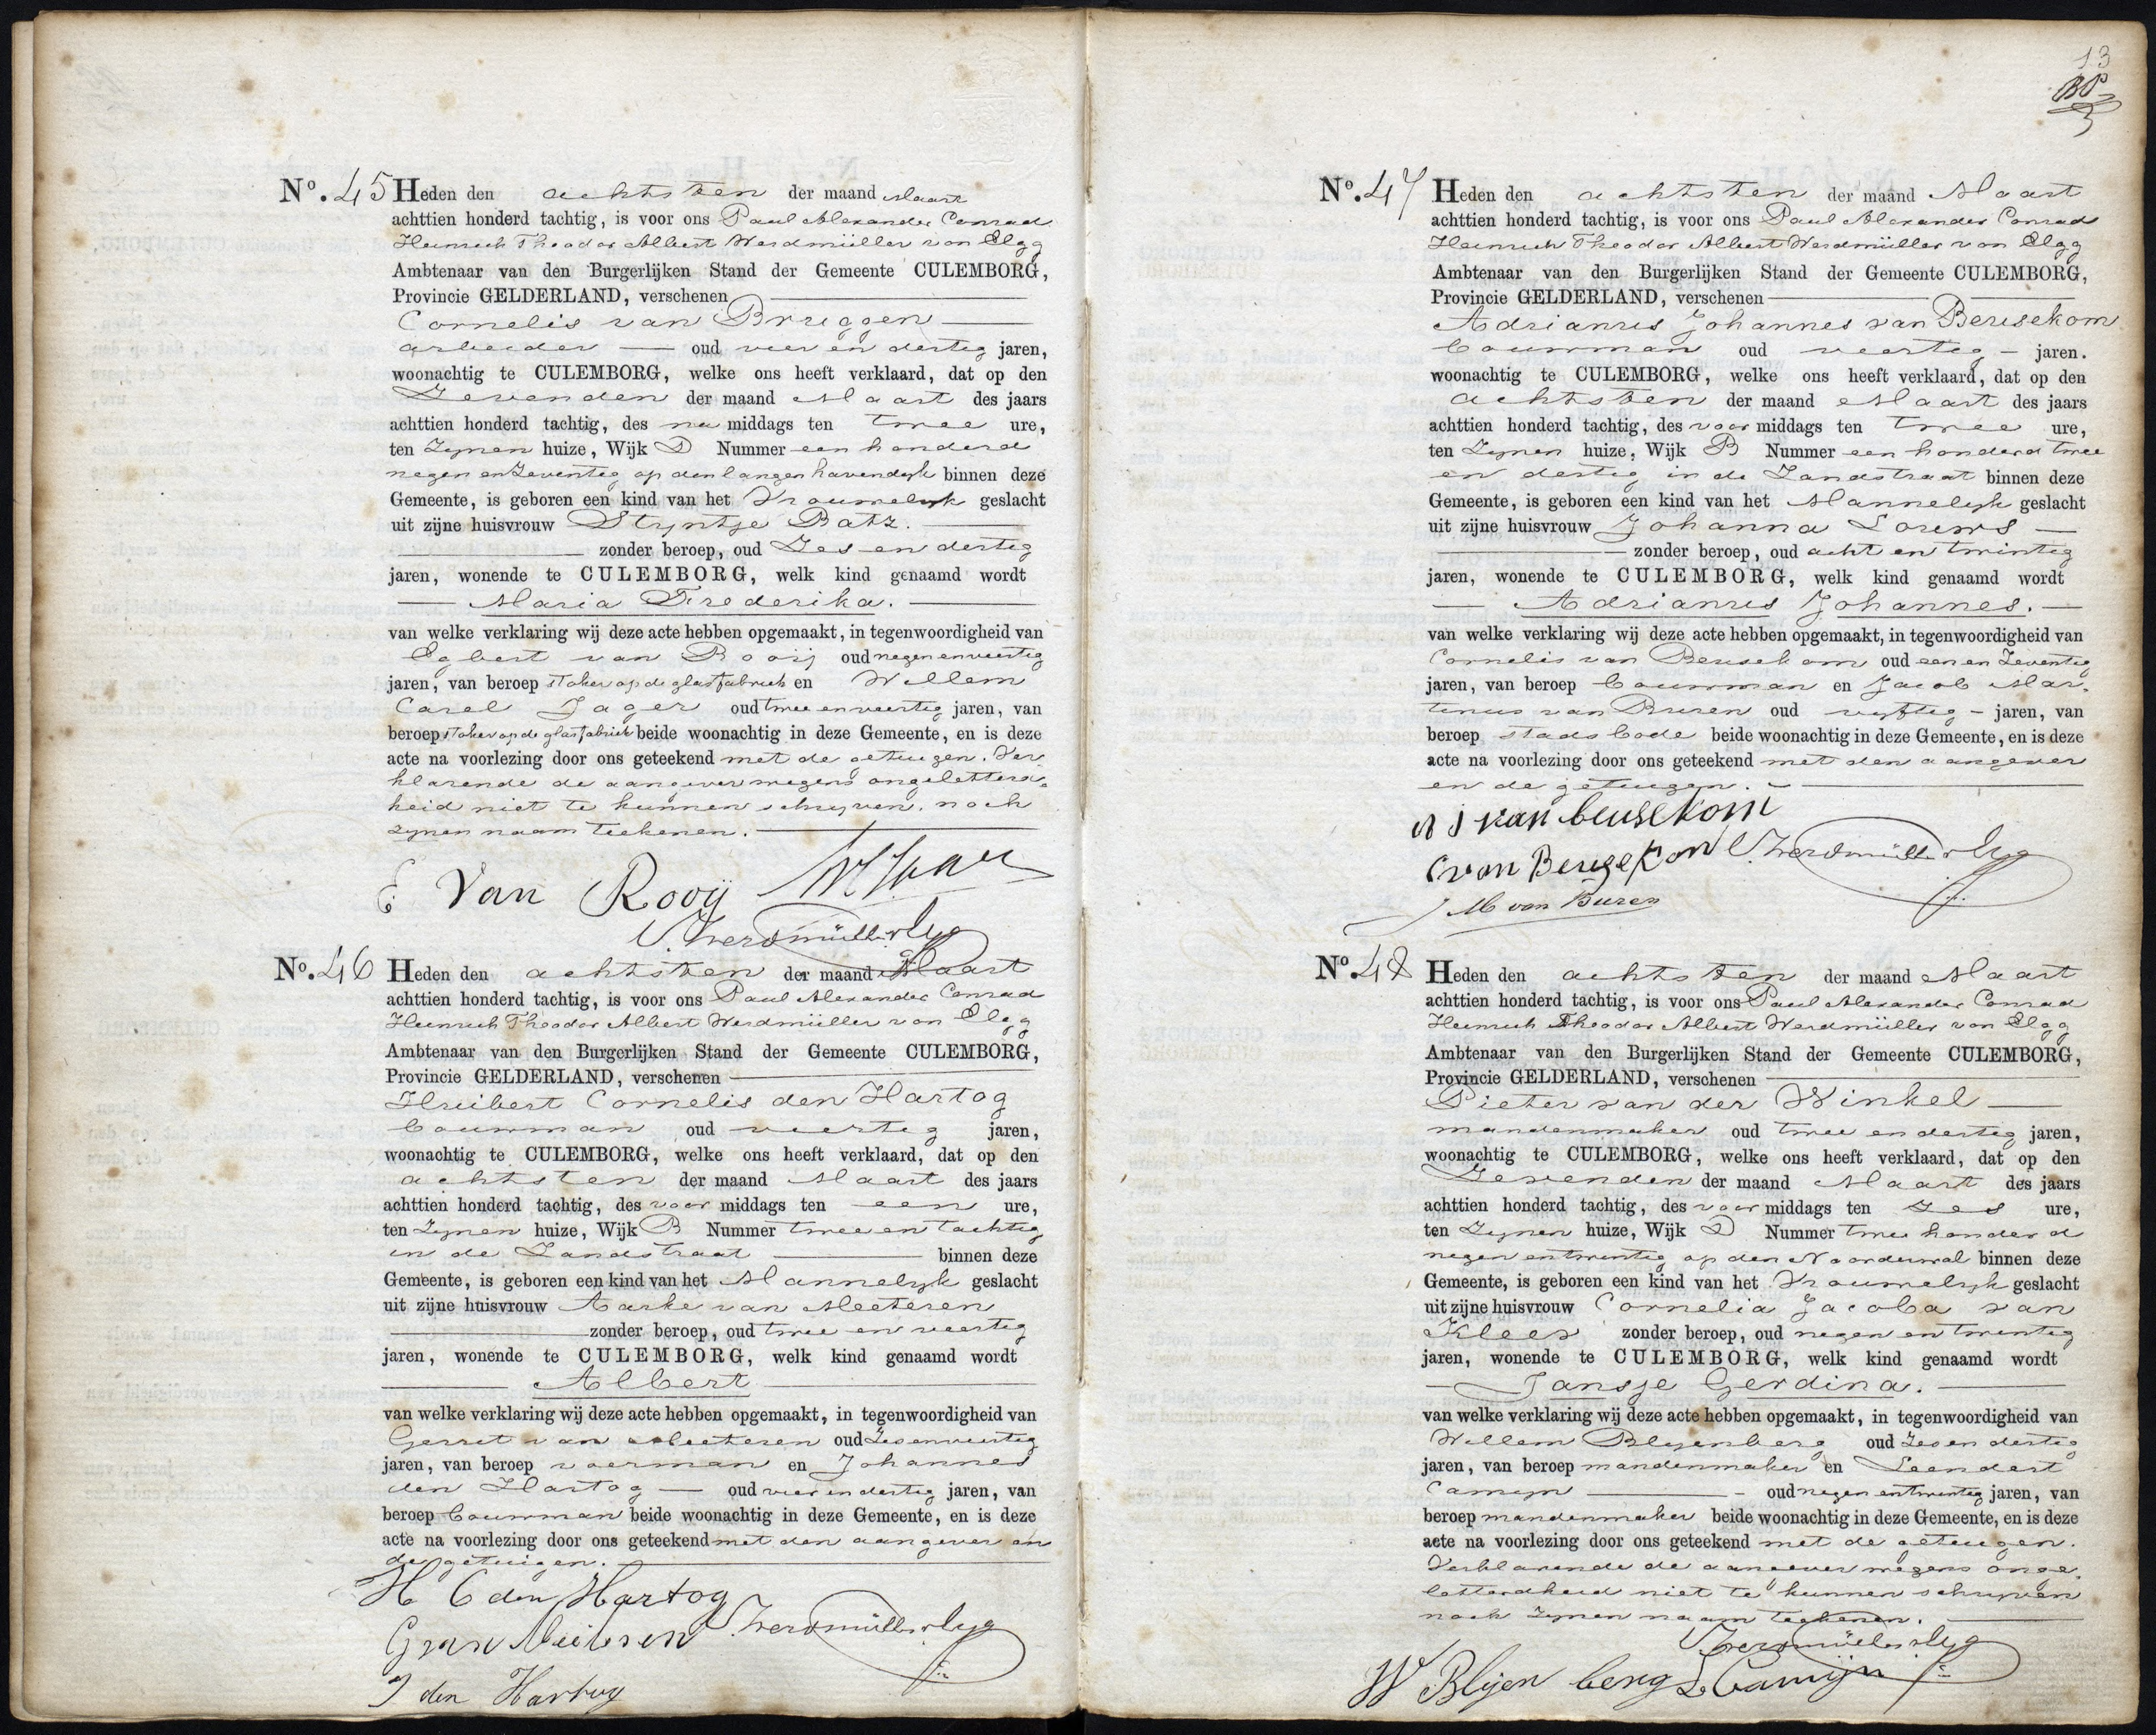 No. 45 Heden den achtsten der maand Maart
achttien honderd tachtig, is voor ons Paul Alexander Conrad
Heinrich Theodor Albert Werdmüller von Elgg
Ambtenaar van den Burgerlijken Stand der Gemeente CULEMBORG,
Provincie GELDERLAND, verschenen
Cornelis van Bruggen
arbeider oud vier en dertig jaren,
woonachtig te CULEMBORG, welke ons heeft verklaard, dat op den
Zevenden der maand Maart des jaars
achttien honderd tachtig, des na middags ten twee ure,
ten Zynen huize, Wijk D Nummer een honderd
negen en Zeventig op den langen havendyk binnen deze
Gemeente, is geboren een kind van het Vrouwelyk geslacht
uit zijne huisvrouw Styntje Batz.
zonder beroep, oud Zes en dertig
jaren, wonende te CULEMBORG, welk kind genaamd wordt
Maria Frederika.
van welke verklaring wij deze acte hebben opgemaakt, in tegenwoordigheid van
Egbert van Rooij oud negen en veertig
jaren, van beroep stoker op de glasfabriek en Willem
Carel Jager oud twee en veertig jaren, van
beroep stoker op de glasfabriek beide woonachtig in deze Gemeente, en is deze
acte na voorlezing door ons geteekend met de getuigen. Ver
klarende de aangever wegens ongeletterd=
heid niet te kunnen schryven, noch
zynen naam teekenen.
E Van Rooij
Werdmüller v Elgg
No. 46 Heden den achtsten der maand Maart
achttien honderd tachtig, is voor ons Paul Alexander Conrad
Heinrich Theodor Albert Werdmüller von Elgg
Ambtenaar van den Burgerlijken Stand der Gemeente CULEMBORG,
Provincie GELDERLAND, verschenen
Huibert Cornelis den Hartog
bouwman oud veertig jaren,
woonachtig te CULEMBORG, welke ons heeft verklaard, dat op den
achtsten der maand Maart des jaars
achttien honderd tachtig, des voor middags ten een ure,
ten Zynen huize, Wijk B Nummer twee en tachtig
in de Zandstraat binnen deze
Gemeente, is geboren een kind van het Mannelyk geslacht
uit zijne huisvrouw Aartje van Meeteren
zonder beroep, oud twee en veertig
jaren, wonende te CULEMBORG, welk kind genaamd wordt
Albert
van welke verklaring wij deze acte hebben opgemaakt, in tegenwoordigheid van
Gerret van Meeteren oud Zes en veertig
jaren, van beroep voerman en Johannes
den Hartog oud vier en dertig jaren, van
beroep bouwman beide woonachtig in deze Gemeente, en is deze
acte na voorlezing door ons geteekend met den aangever en
de getuigen.
H C den Hartog
G van Meeteren Werdmüller v Elgg
J den Hartog
13
No. 47 Heden den achtsten der maand Maart
achttien honderd tachtig, is voor ons Paul Alexander Conrad
Heinrich Theodor Albert Werdmüller von Elgg
Ambtenaar van den Burgerlijken Stand der Gemeente CULEMBORG,
Provincie GELDERLAND, verschenen
Adrianus Johannes van Beusekom
bouwman oud veertig jaren.
woonachtig te CULEMBORG, welke ons heeft verklaard, dat op den
achtsten der maand Maart des jaars
achttien honderd tachtig, des voor middags ten twee ure,
ten Zynen huize, Wijk B Nummer een honderd twee
en dertig in de Zandstraat binnen deze
Gemeente, is geboren een kind van het Mannelyk geslacht
uit zijne huisvrouw Johanna Louws
zonder beroep, oud acht en twintig
jaren, wonende te CULEMBORG, welk kind genaamd wordt
Adrianus Johannes.
van welke verklaring wij deze acte hebben opgemaakt, in tegenwoordigheid van
Cornelis van Beusekom oud een en Zeventig
jaren, van beroep bouwman en Jacob Mar=
tinus van Buren oud vyftig jaren, van
beroep stads bode beide woonachtig in deze Gemeente, en is deze
acte na voorlezing door ons geteekend met den aangever
en de getuigen.
A J van beusekom
C van Beusekom Werdmüller v Elgg
J M van Buren
No. 48 Heden den achtsten der maand Maart
achttien honderd tachtig, is voor ons Paul Alexander Conrad
Heinrich Theodor Albert Werdmüller von Elgg
Ambtenaar van den Burgerlijken Stand der Gemeente CULEMBORG,
Provincie GELDERLAND, verschenen
Pieter van der Winkel
mandenmaker oud twee en dertig jaren,
woonachtig te CULEMBORG, welke ons heeft verklaard, dat op den
Zevenden der maand Maart des jaars
achttien honderd tachtig, des voor middags ten Zes ure,
ten Zynen huize, Wijk D Nummer twee honderd
negen en twintig op den Noorderwal binnen deze
Gemeente, is geboren een kind van het Vrouwelyk geslacht
uit zijne huisvrouw Cornelia Jacoba van
Kleef zonder beroep, oud negen en twintig
jaren, wonende te CULEMBORG, welk kind genaamd wordt
Jansje Gerdina.
van welke verklaring wij deze acte hebben opgemaakt, in tegenwoordigheid van
Willem Blyenberg oud Zes en dertig
jaren, van beroep mandenmaker en Leendert
Camyn oud negen en twintig jaren, van
beroep mandenmaker beide woonachtig in deze Gemeente, en is deze
acte na voorlezing door ons geteekend met de getuigen.
Verklarende de aangever wegens onge=
letterdheid niet te kunnen schryven
noch zynen naam teekenen.
Werdmüller v Elgg
W Blijenberg L Camijn